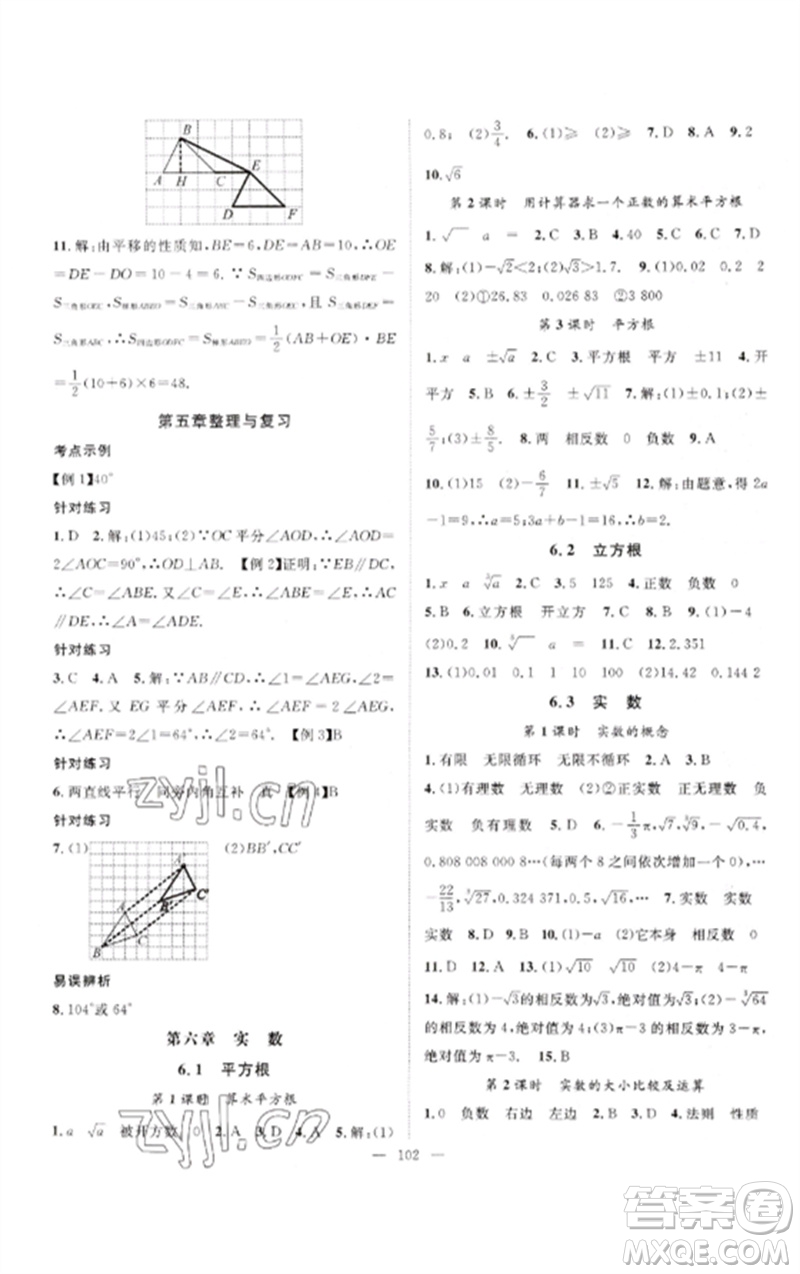 B
A H C E
D F
11.解:由平移的性质知,BE=6,DE=AB=10,∴OE
=DE-DO=10-4=6.∵S四边形ODFC=S三角形DFE-
S三角形OEC,S梯形ABEO=S三角形ABC-S三角形OEC,且 S三角形DEF=
S三角形ABC,∴S四边形ODFC=S梯形ABEO=1/2(AB+OE)·BE
=1/2(10+6)×6=48.
第五章整理与复习
考点示例
【例1】40°
针对练习
1.D 2.解:(1)45;(2)∵OC平分∠AOD,∴∠AOD=
2∠AOC=90°,∴OD⊥AB. 【例2】证明:∵EB∥DC,
∴∠C=∠ABE.又∵∠C=∠E,∴∠E=∠ABE.∴AC
∥DE,∴∠A=∠ADE.
针对练习
3.C 4.A 5.解:∵AB∥CD,∴∠1=∠AEG,∠2=
∠AEF.又 EG 平分∠AEF,∴∠AEF=2∠AEG,
∴∠2=2∠1.∵∠1=32°,∴∠2=64°. 【例3】B
针对练习
6.两直线平行 同旁内角互补 真 【例4】B
针对练习
7.(1) (2)BB′,CC′
A′
B′ C′
A
B C
易误辨析
8.104°或64°
第六章 实 数
6.1 平方根
第1课时 算术平方根
1.a √a 被开方数 0 2.A 3.D 4.A 5.解:(1)
0.8;(2)3/4. 6.(1)≥ (2)≥ 7.D 8.A 9.2
10.√6
第2课时 用计算器求一个正数的算术平方根
1.√ a = 2.C 3.B 4.40 5.B 6.C 7.D
8.解:(1)-√2<2;(2)√3>1.7. 9.(1)0.02 0.2 2
20 (2)①26.83 0.026 83 ②3 800
第3课时 平方根
1.x a ±√a 2.C 3.平方根 平方 ±11 4.开
平方 5.B 6.±3/2 ±√11 7.解:(1)±0.1;(2)±
5/7;(3)±8/5. 8.两 相反数 0 负数 9.A
10.(1)15 (2)-6/7 11.±√5 12.解:由题意,得2a
-1=9;∴a=5;3a+b-1=16,∴b=2.
6.2 立方根
1.x a ∛a 2.C 3.5 125 4.正数 负数 0
5.B 6.立方根 开立方 7.B 8.C 9.(1)-4
(2)0.2 10.∛ a = 11.C 12.2.351
13.(1)0.01 0.1 1 10 100 (2)14.42 0.144 2
6.3 实 数
第1课时 实数的概念
1.有限 无限循环 无限不循环 2.A 3.B
4.(1)有理数 无理数 (2)②正实数 正无理数 负
实数 负有理数 5.D 6.-1/3π,√7,∛9,-√0.4,
0.808 008 000 8…(每两个8之间依次增加一个0),…
-22/13,∛27,0.324 371,0.5,√16,… 7.实数 实数
实数 8.D 9.C 10.(1)-a (2)它本身 相反数 0
11.D 12.A 13.(1)√10 √10 (2)4-π 4-π
14.解:(1)-√3的相反数为√3,绝对值为√3;(2)-∛64
的相反数为4,绝对值为4;(3)π-3的相反数为3-π,
绝对值为π-3. 15.B
第2课时 实数的大小比较及运算
1.0 负数 右边 左边 2.D 3.B 4.法则 性质
— 102 —
zyjl.cn
zyjl.cn
答案卷
MXQE.COM